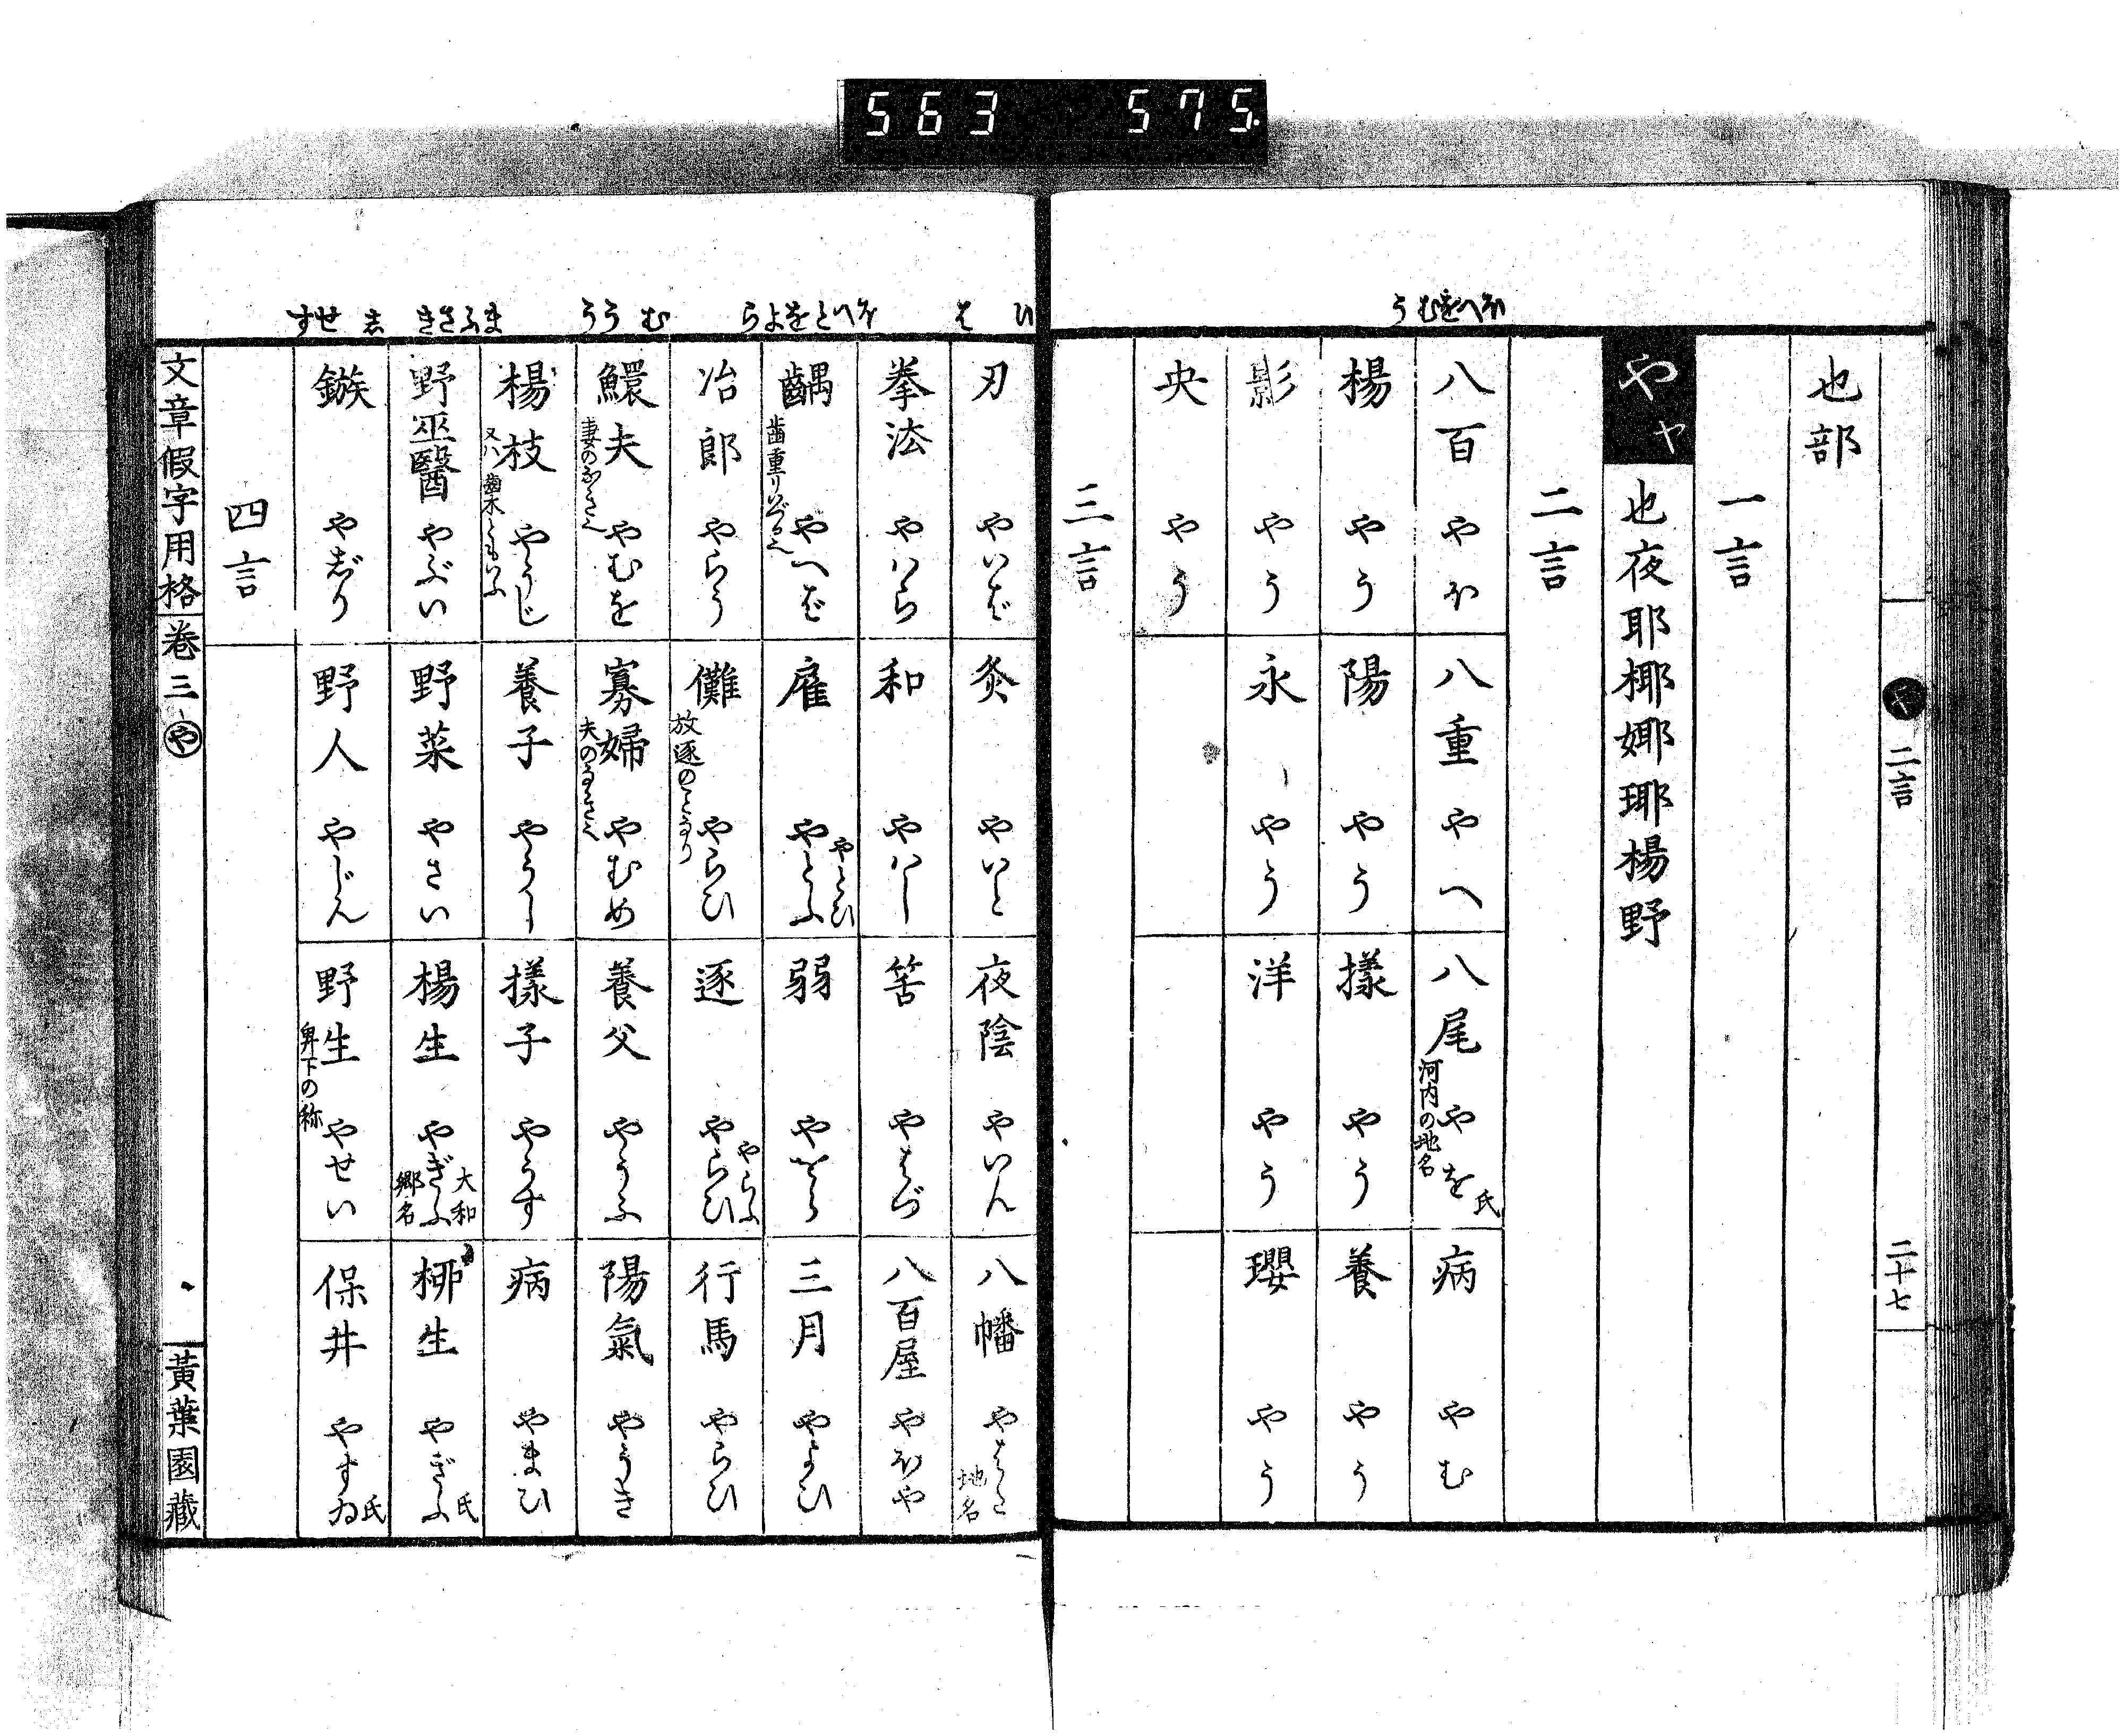 563 575
うむをへほ
二言
二十七
也部
一言
や ヤ
也夜耶椰娜瑘楊野
二言
八百 やほ
八重 やへ
八尾 やを 氏
河内の地名
病 やむ
楊 やう
陽 やう
樣 やう
養 やう
影 やう
永 やう
洋 やう
瓔 やう
央 やう
三言
すせ し きさふま ううむ らよをとへほ は ひ
刃 やいば
灸 やいと
夜陰 やいん
八幡 やはた
地名
拳法 やハら
和 やハし
筈 やはず
八百屋 やほや
齵 やへば
歯重りいづる也
雇 やとひ やとふ
弱 やをら
三月 やよひ
冶郎 やらう
儺 やらひ
放逐のことなり
逐 やらふ やらひ
行馬 やらひ
鰥夫 やむを
寡婦 やむめ
養父 やうふ
陽氣 やうき
楊枝 やうじ
又ハ歯木ともいふ
養子 やうし
樣子 やうす
病 やまひ
野巫醫 やぶい
野菜 やさい
楊生 やぎふ
大和郷名
柳生 やぎふ 氏
鏃 やじり
野人 やじん
野生 やせい
卑下の称
保井 やすゐ 氏
四言
文章假字用格 卷三 や
黃葉園藏